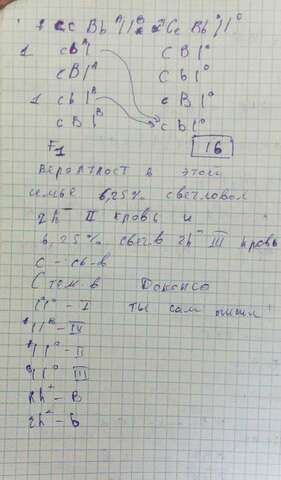 cc Bb IᴬIᴮ x Cc Bb I⁰I⁰
1 cbIᴬ CBI⁰
cBIᴬ CbI⁰
1 cbIᴮ cBI⁰
cBIᴮ cbI⁰
F₁ 16
вероятност в этой
семье 6,25% светловол
rh⁻ II кровь и
6,25% свет.в rh⁻ III кровь
c - св-в
C тем в
I⁰I⁰ - I ты сам
IᴬIᴮ - IV
IᴬI⁰ - II
IᴮI⁰ III
Rh⁺ - B
rh⁻ - b